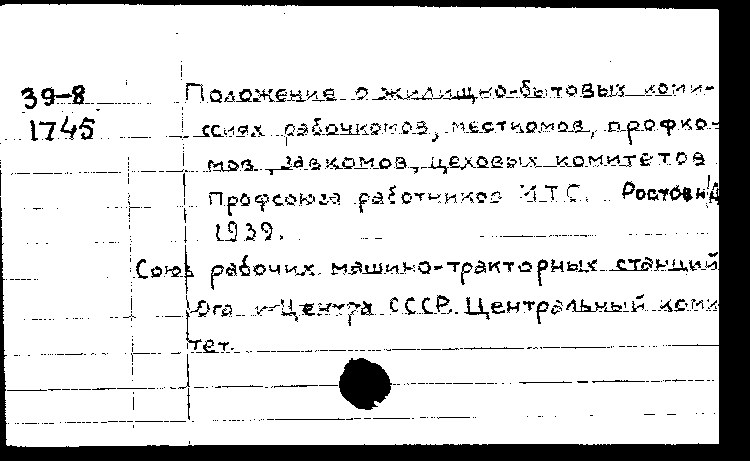 39-8 Положение о жилищно-бытовых коми-
1745 ссиях рабочкомов, месткомов, профко-
мов, завкомов, цеховых комитетов
Профсоюза работников МТС. Ростов н/Д
1939.
Союз рабочих машино-тракторных станций
Юга и Центра СССР. Центральный коми
тет.